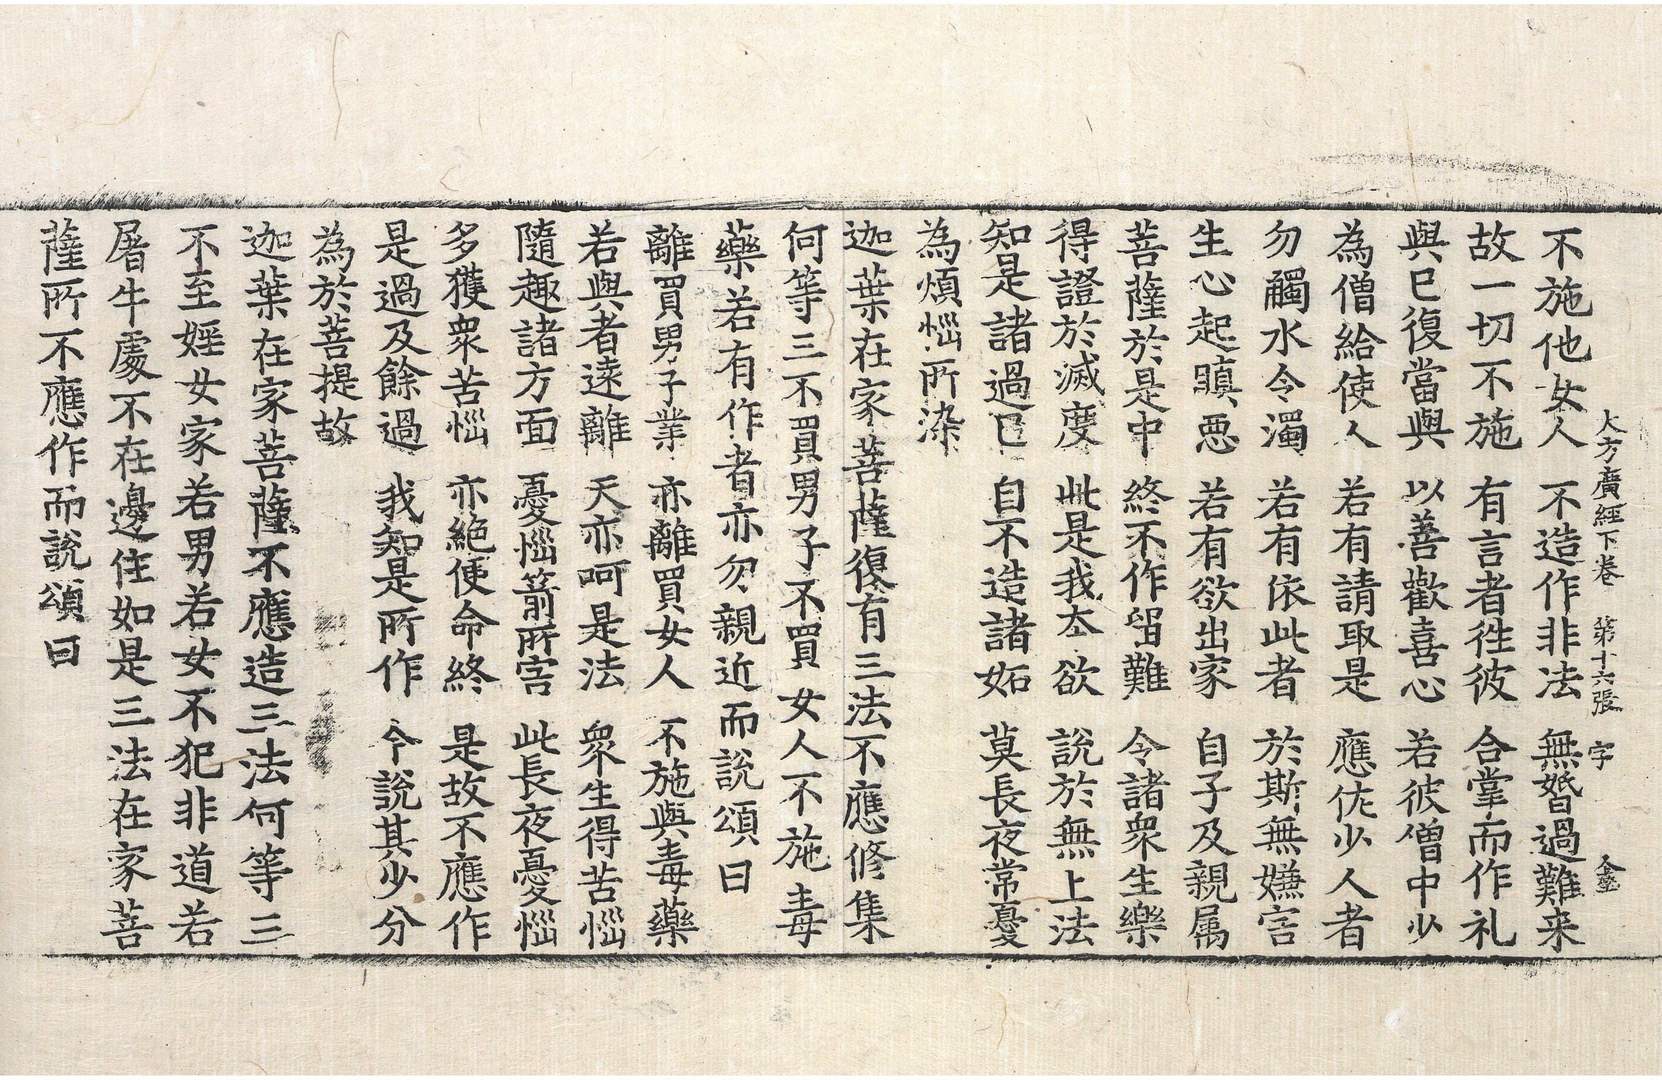 大方廣經下卷 第十六張 字
不施他女人 不造作非法 無婚過難来
故一切不施 有言者徃彼 合掌而作礼
與已復當與 以善歡喜心 若彼僧中少
為僧給使人 若有請取是 應佐少人者
勿觸水令濁 若有依此者 於斯無嫌害
生心起瞋惡 若有欲出家 自子及親属
菩薩於是中 終不作留難 令諸衆生樂
得證於滅度 此是我夲欲 說於無上法
知是諸過已 自不造諸妬 莫長夜常憂
為煩惱所染
迦葉在家菩薩復有三法不應修集
何等三不買男子不買女人不施毒
藥若有作者亦勿親近而說頌曰
離買男子業 亦離買女人 不施與毒藥
若與者遠離 天亦呵是法 衆生得苦惱
隨趣諸方面 憂惱箭所害 此長夜憂惱
多獲衆苦惱 亦絕使命終 是故不應作
是過及餘過 我知是所作 今說其少分
為於菩提故
迦葉在家菩薩不應造三法何等三
不至婬女家若男若女不犯非道若
屠牛處不在邊住如是三法在家菩
薩所不應作而說頌曰